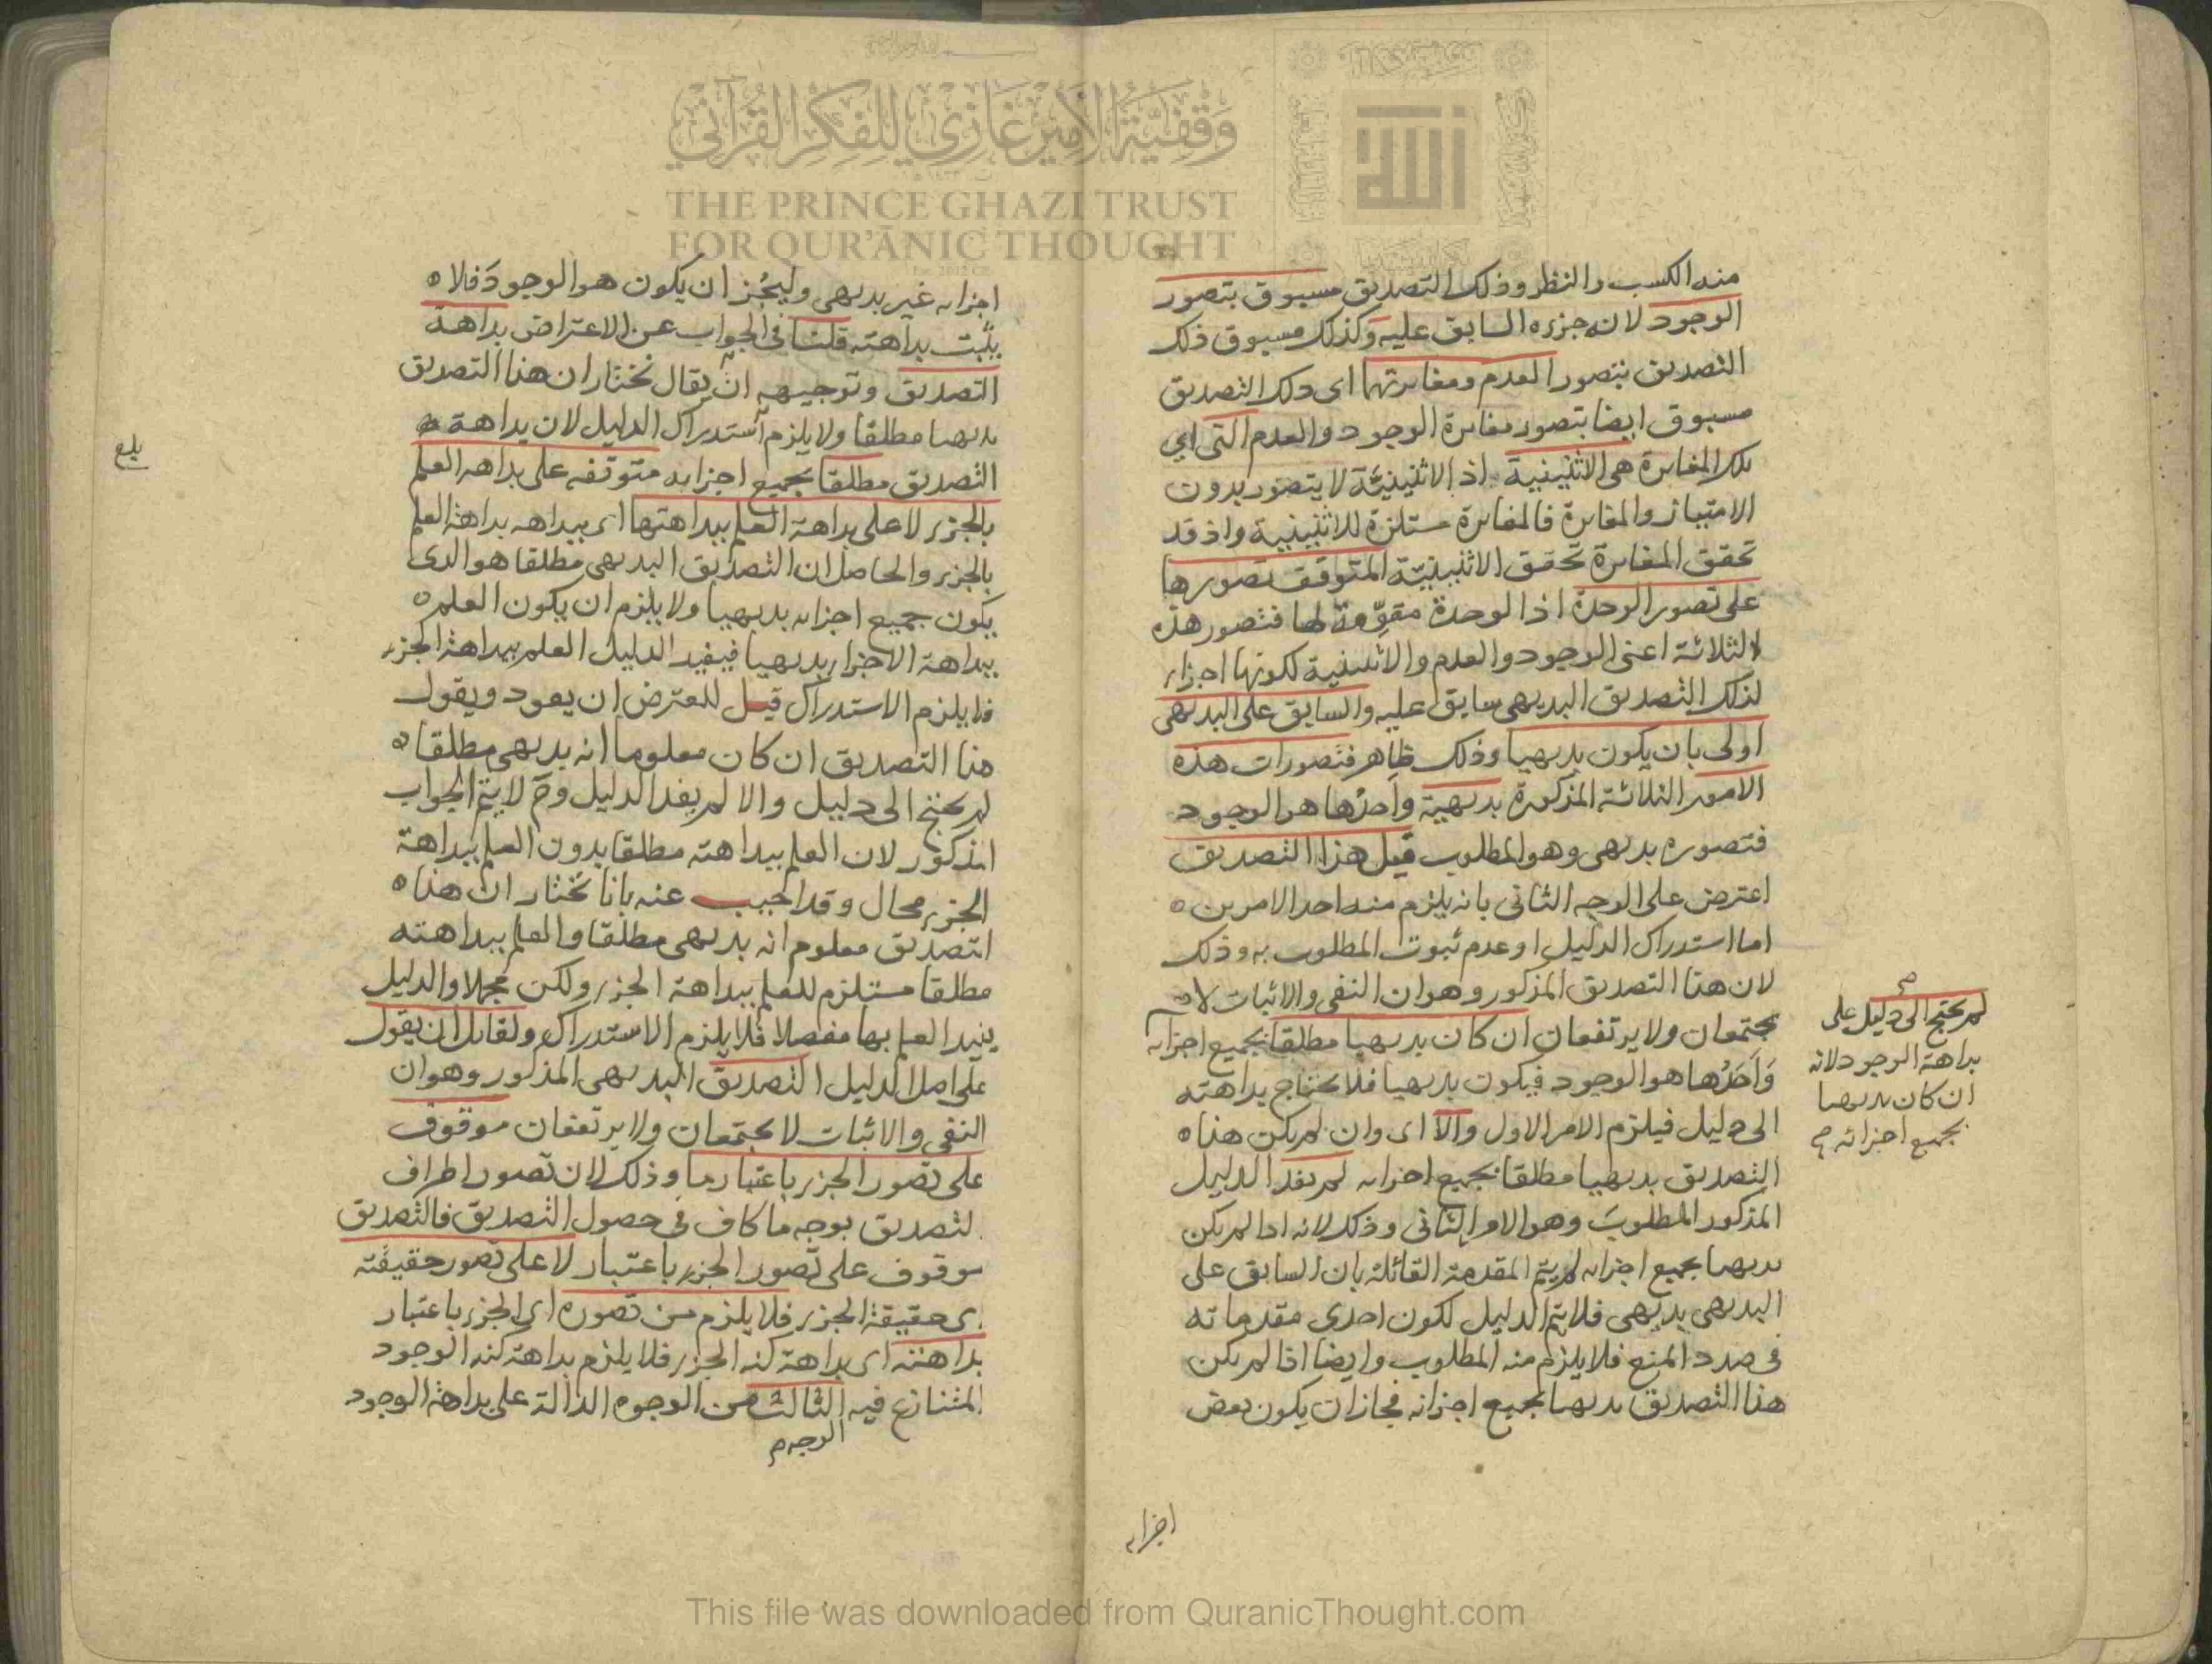 وقفية الأمير غازي للفكر القرآني
THE PRINCE GHAZI TRUST
FOR QUR'ĀNIC THOUGHT
الله
منه الكسب والنظر وذلك التصديق مسبوق بتصور
الوجود لانه جزءه السابق عليه وكذلك مسبوق ذلك
التصديق بتصور العدم ومغايرتهما اى ذلك التصديق
مسبوق ايضا بتصور مغايرة الوجود والعدم التى اي
تلك المغايرة هى الاثنينية اذ الاثنينية لا يتصور بدون
الامتياز والمغايرة فالمغايرة مستلزمة للاثنينية واذ قد
تحقق المغايرة تحقق الاثنينية المتوقف تصورها
على تصور الوحدة اذ الوحدة مقوِّمة لها فتصور هذه
الثلاثة اعنى الوجود والعدم والاثنينية لكونها اجزاء
لذلك التصديق البديهى سابق عليه والسابق على البديهى
اولى بان يكون بديهيا وذلك ظاهر فتصورات هذه
الامور الثلاثة المذكورة بديهية وأحدُها هو الوجود
فتصوره بديهى وهو المطلوب قيل هذا التصديق
اعترض على الوجه الثانى بانه يلزم منه احد الامرين ه
اما استدراك الدليل او عدم ثبوت المطلوب به وذلك
لان هذا التصديق المذكور وهو ان النفى والاثبات لا
يجتمعان ولا يرتفعان ان كان بديهيا مطلقا بجميع اجزايه
وَأحَدُها هو الوجود فيكون بديهيا فلا يحتاج بداهته
الى دليل فيلزم الامر الاول والّا اى وان لم يكن هذا ه
التصديق بديهيا مطلقا بجميع اجزايه لم يفد الدليل
المذكور المطلوبَ وهو الامر الثانى وذلك لانه اذا لم يكن
بديهيا بجميع اجزايه لم يتم المقدمة القائلة بان السابق على
البديهى بديهى فلا يتم الدليل لكون احدى مقدماته
فى صدد المنع فلا يلزم منه المطلوب وايضا اذا لم يكن
هذا التصديق بديهيا بجميع اجزائه فجاز ان يكون بعض
لم يحتج الى دليل على
بداهة الوجود لانه
ان كان بديهيا
بجميع اجزائه
اجزايه
اجزايه غير بديهى وليجُز ان يكون هو الوجودَ فلا ه
يثبت بداهته قلنا فى الجواب عن الاعتراض بداهة
التصديق وتوجيهه ان يقال نختار ان هذا التصديق
بديهيا مطلقا ولا يلزم استدراك الدليل لان بداهة
التصديق مطلقا بجميع اجزايه متوقفه على بداهه العلم
بالجزء لا على بداهة العلم ببداهتها اى ببداهه بداهة العلم
بالجزء والحاصل ان التصديق البديهى مطلقا هو الذى
يكون جميع اجزايه بديهيا ولا يلزم ان يكون العلم ه
ببداهة الاجزاء بديهيا فيفيد الدليل العلم ببداهة الجزء
فلا يلزم الاستدراك قيل للمعترض ان يعود ويقول
هذا التصديق ان كان معلوما انه بديهى مطلقا ه
لم يحتج الى دليل والا لم يفد الدليل وح لا يتم الجواب
المذكور لان العلم ببداهته مطلقا بدون العلم ببداهة
الجزء محال وقد اجيب عنه بانا نختار ان هذا ه
التصديق معلوم انه بديهى مطلقا والعلم ببداهته
مطلقا مستلزم للعلم ببداهة الجزء ولكن مجملا والدليل
يفيد العلم بها مفصلا فلا يلزم الاستدراك ولقائل ان يقول
على اصل الدليل التصديق البديهى المذكور وهو ان
النفى والاثبات لا يجتمعان ولا يرتفعان موقوف
على تصور الجزء باعتبار ما وذلك لان تصور اطراف
التصديق بوجه ما كاف فى حصول التصديق فالتصديق
موقوف على تصور الجزء باعتبار لا على تصور حقيقته
اى حقيقة الجزء فلا يلزم من تصوره اى الجزء باعتبار
بداهته اى بداهة كنه الجزء فلا يلزم بداهة كنه الوجود
المتنازع فيه الثالث من الوجوه الدالة على بداهة الوجود
الوجه
بلغ
This file was downloaded from QuranicThought.com